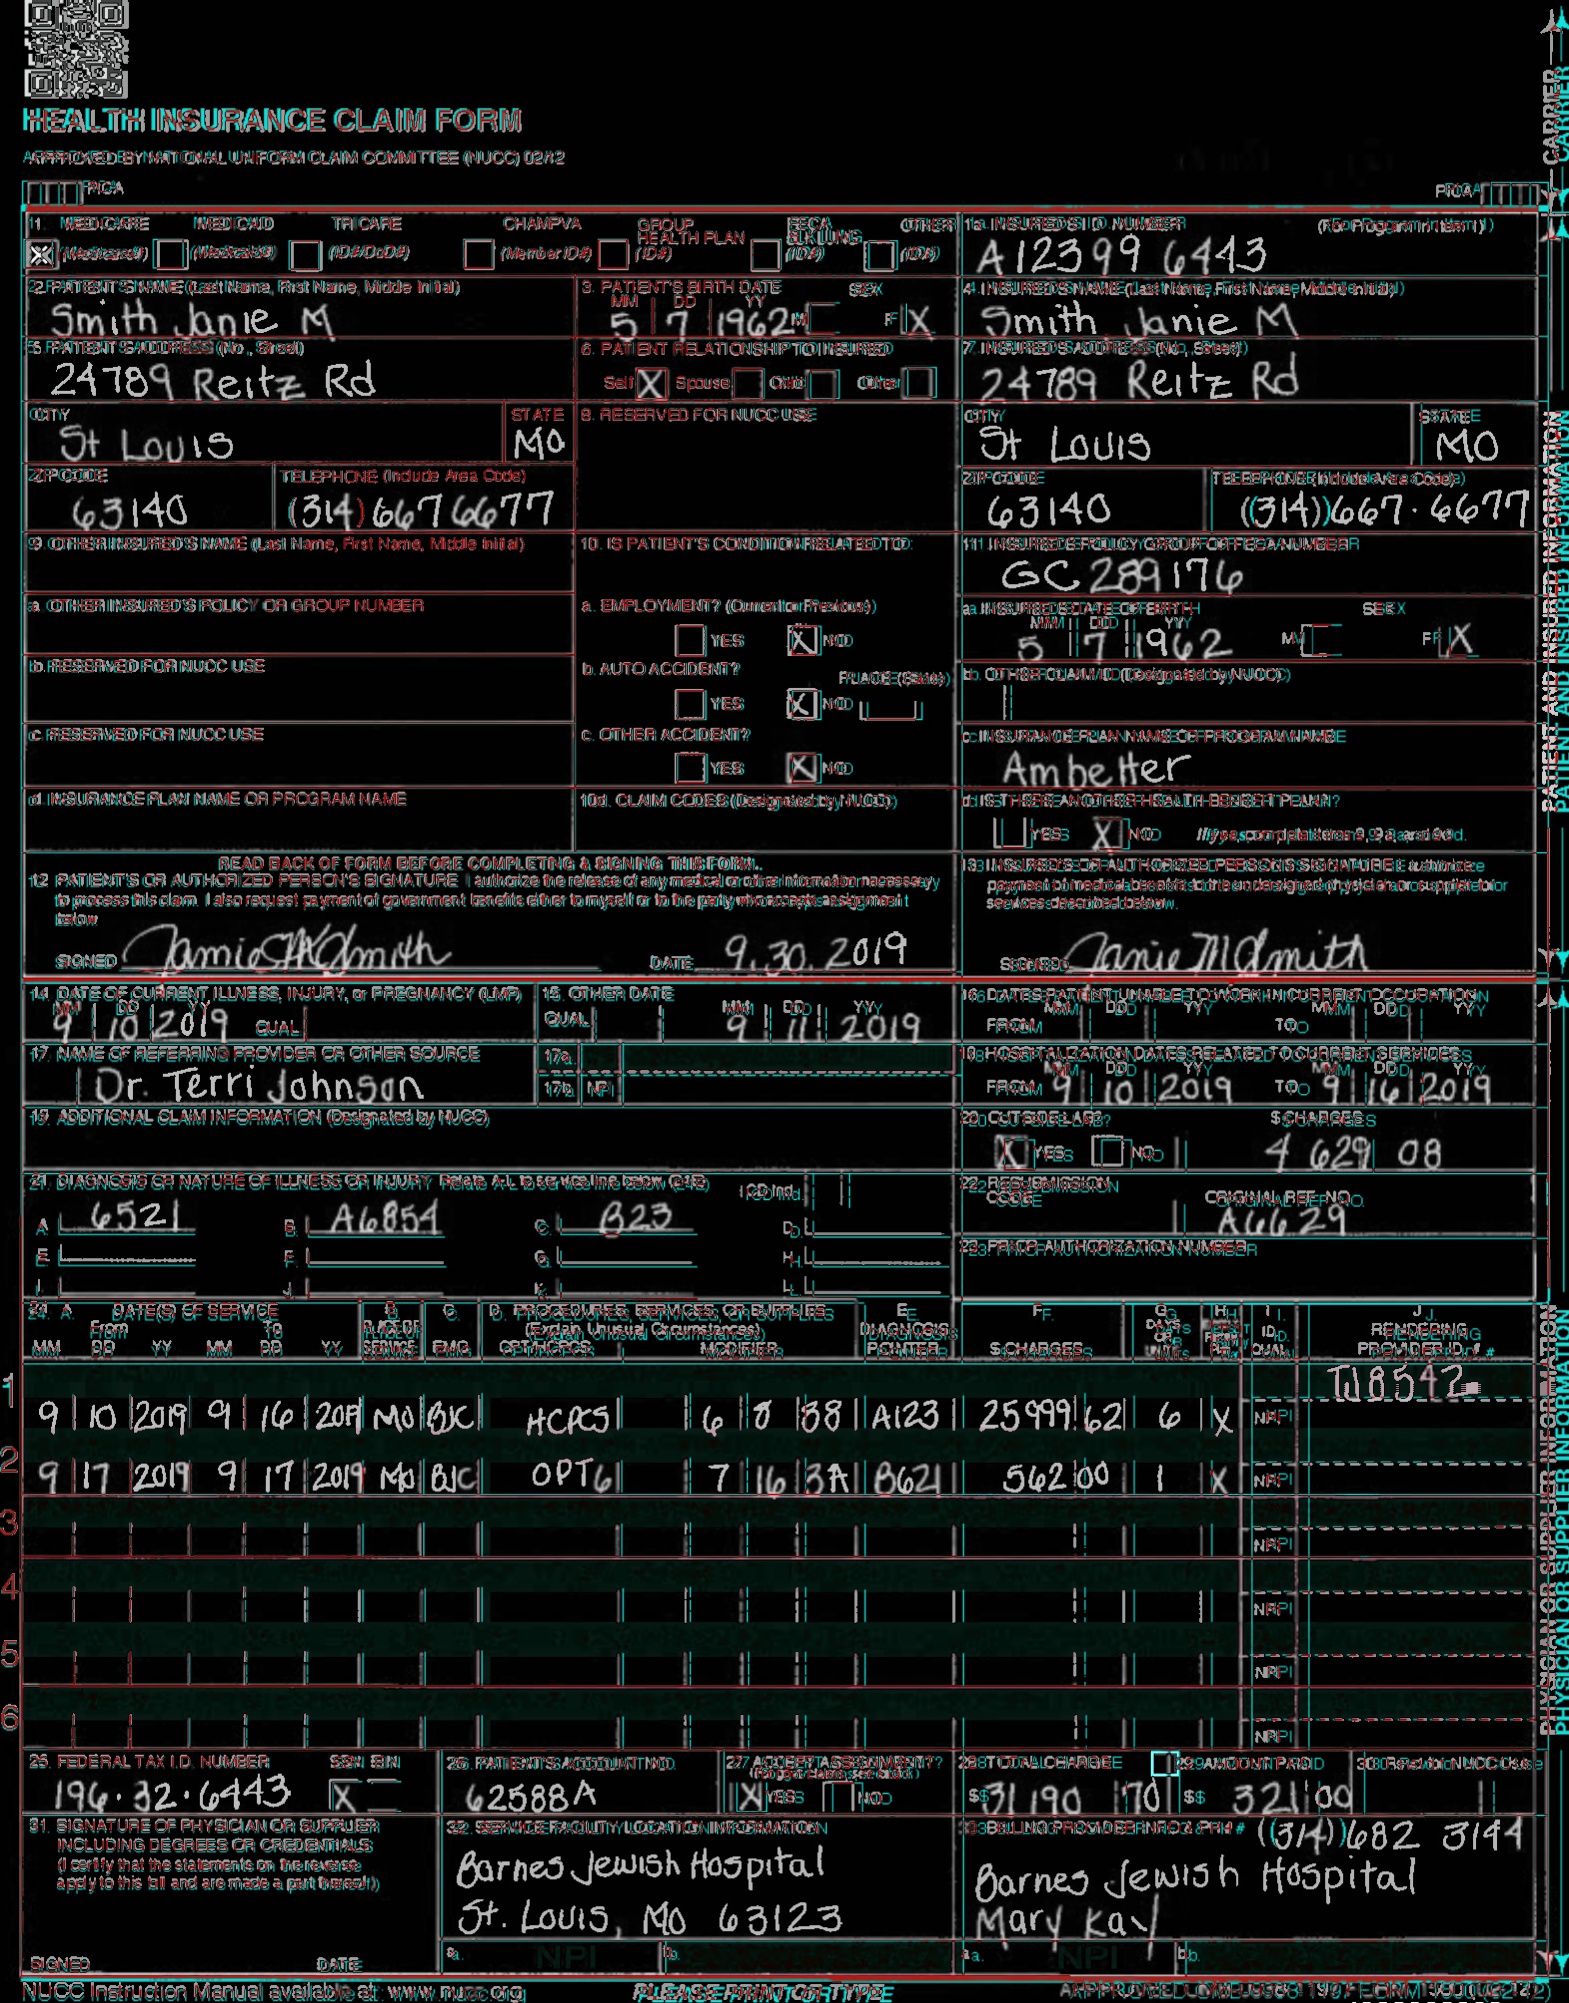 HEALTH INSURANCE CLAIM FORM
APPROVED BY NATIONAL UNIFORM CLAIM COMMITTEE (NUCC) 02/12
PICA
PICA
CARRIER
1. MEDICARE MEDICAID TRICARE CHAMPVA GROUP HEALTH PLAN FECA BLK LUNG OTHER
(Medicare#) (Medicaid#) (ID#/DoD#) (Member ID#) (ID#) (ID#) (ID#)
1a. INSURED'S I.D. NUMBER (For Program in Item 1)
A12399 6443
2. PATIENT'S NAME (Last Name, First Name, Middle Initial)
Smith Janie M
3. PATIENT'S BIRTH DATE SEX
MM DD YY
5 7 1962 M F X
4. INSURED'S NAME (Last Name, First Name, Middle Initial)
Smith Janie M
5. PATIENT'S ADDRESS (No., Street)
24789 Reitz Rd
6. PATIENT RELATIONSHIP TO INSURED
Self X Spouse Child Other
7. INSURED'S ADDRESS (No., Street)
24789 Reitz Rd
CITY STATE
St Louis MO
8. RESERVED FOR NUCC USE
CITY STATE
St Louis MO
ZIP CODE TELEPHONE (Include Area Code)
63140 (314) 667 6677
ZIP CODE TELEPHONE (Include Area Code)
63140 (314) 667.6677
9. OTHER INSURED'S NAME (Last Name, First Name, Middle Initial)
10. IS PATIENT'S CONDITION RELATED TO:
11. INSURED'S POLICY GROUP OR FECA NUMBER
GC 289176
a. OTHER INSURED'S POLICY OR GROUP NUMBER
a. EMPLOYMENT? (Current or Previous)
YES X NO
a. INSURED'S DATE OF BIRTH SEX
MM DD YY
5 7 1962 M F X
b. RESERVED FOR NUCC USE
b. AUTO ACCIDENT? PLACE (State)
YES X NO
b. OTHER CLAIM ID (Designated by NUCC)
c. RESERVED FOR NUCC USE
c. OTHER ACCIDENT?
YES X NO
c. INSURANCE PLAN NAME OR PROGRAM NAME
Ambetter
d. INSURANCE PLAN NAME OR PROGRAM NAME
10d. CLAIM CODES (Designated by NUCC)
d. IS THERE ANOTHER HEALTH BENEFIT PLAN?
YES X NO If yes, complete items 9, 9a, and 9d.
READ BACK OF FORM BEFORE COMPLETING & SIGNING THIS FORM.
12. PATIENT'S OR AUTHORIZED PERSON'S SIGNATURE I authorize the release of any medical or other information necessary
to process this claim. I also request payment of government benefits either to myself or to the party who accepts assignment
below.
SIGNED Janie M Smith DATE 9.30.2019
13. INSURED'S OR AUTHORIZED PERSON'S SIGNATURE I authorize
payment of medical benefits to the undersigned physician or supplier for
services described below.
SIGNED Janie M Smith
PATIENT AND INSURED INFORMATION
14. DATE OF CURRENT ILLNESS, INJURY, or PREGNANCY (LMP)
MM DD YY
9 10 2019 QUAL.
15. OTHER DATE
QUAL. MM DD YY
9 11 2019
16. DATES PATIENT UNABLE TO WORK IN CURRENT OCCUPATION
MM DD YY MM DD YY
FROM TO
17. NAME OF REFERRING PROVIDER OR OTHER SOURCE
Dr. Terri Johnson
17a.
17b. NPI
18. HOSPITALIZATION DATES RELATED TO CURRENT SERVICES
MM DD YY MM DD YY
FROM 9 10 2019 TO 9 16 2019
19. ADDITIONAL CLAIM INFORMATION (Designated by NUCC)
20. OUTSIDE LAB? $ CHARGES
X YES NO 4 629 08
21. DIAGNOSIS OR NATURE OF ILLNESS OR INJURY Relate A-L to service line below (24E) ICD Ind.
A. 6521 B. A6854 C. B23 D.
E. F. G. H.
I. J. K. L.
22. RESUBMISSION CODE ORIGINAL REF. NO.
A6629
23. PRIOR AUTHORIZATION NUMBER
24. A. DATE(S) OF SERVICE B. C. D. PROCEDURES, SERVICES, OR SUPPLIES E. F. G. H. I. J.
From To PLACE OF (Explain Unusual Circumstances) DIAGNOSIS DAYS OR ID. RENDERING
MM DD YY MM DD YY SERVICE EMG CPT/HCPCS MODIFIER POINTER $ CHARGES UNITS QUAL. PROVIDER ID. #
1
9 10 2019 9 16 2019 MO BJC HCPCS 6 8 38 A123 25999 62 6 X NPI
2
9 17 2019 9 17 2019 MO BJC OPT6 7 16 3A B621 562 00 1 X NPI
3 NPI
4 NPI
5 NPI
6 NPI
PHYSICIAN OR SUPPLIER INFORMATION
25. FEDERAL TAX I.D. NUMBER SSN EIN
196.32.6443 X
26. PATIENT'S ACCOUNT NO.
62588A
27. ACCEPT ASSIGNMENT?
(For govt. claims, see back)
X YES NO
28. TOTAL CHARGE
$ 31190 70
29. AMOUNT PAID
$ 321 00
30. Rsvd for NUCC Use
31. SIGNATURE OF PHYSICIAN OR SUPPLIER
INCLUDING DEGREES OR CREDENTIALS
(I certify that the statements on the reverse
apply to this bill and are made a part thereof.)
SIGNED DATE
32. SERVICE FACILITY LOCATION INFORMATION
Barnes Jewish Hospital
St. Louis, MO 63123
a. NPI b.
33. BILLING PROVIDER INFO & PH # (314) 682 3144
Barnes Jewish Hospital
Mary Kay
a. NPI b.
NUCC Instruction Manual available at: www.nucc.org
PLEASE PRINT OR TYPE